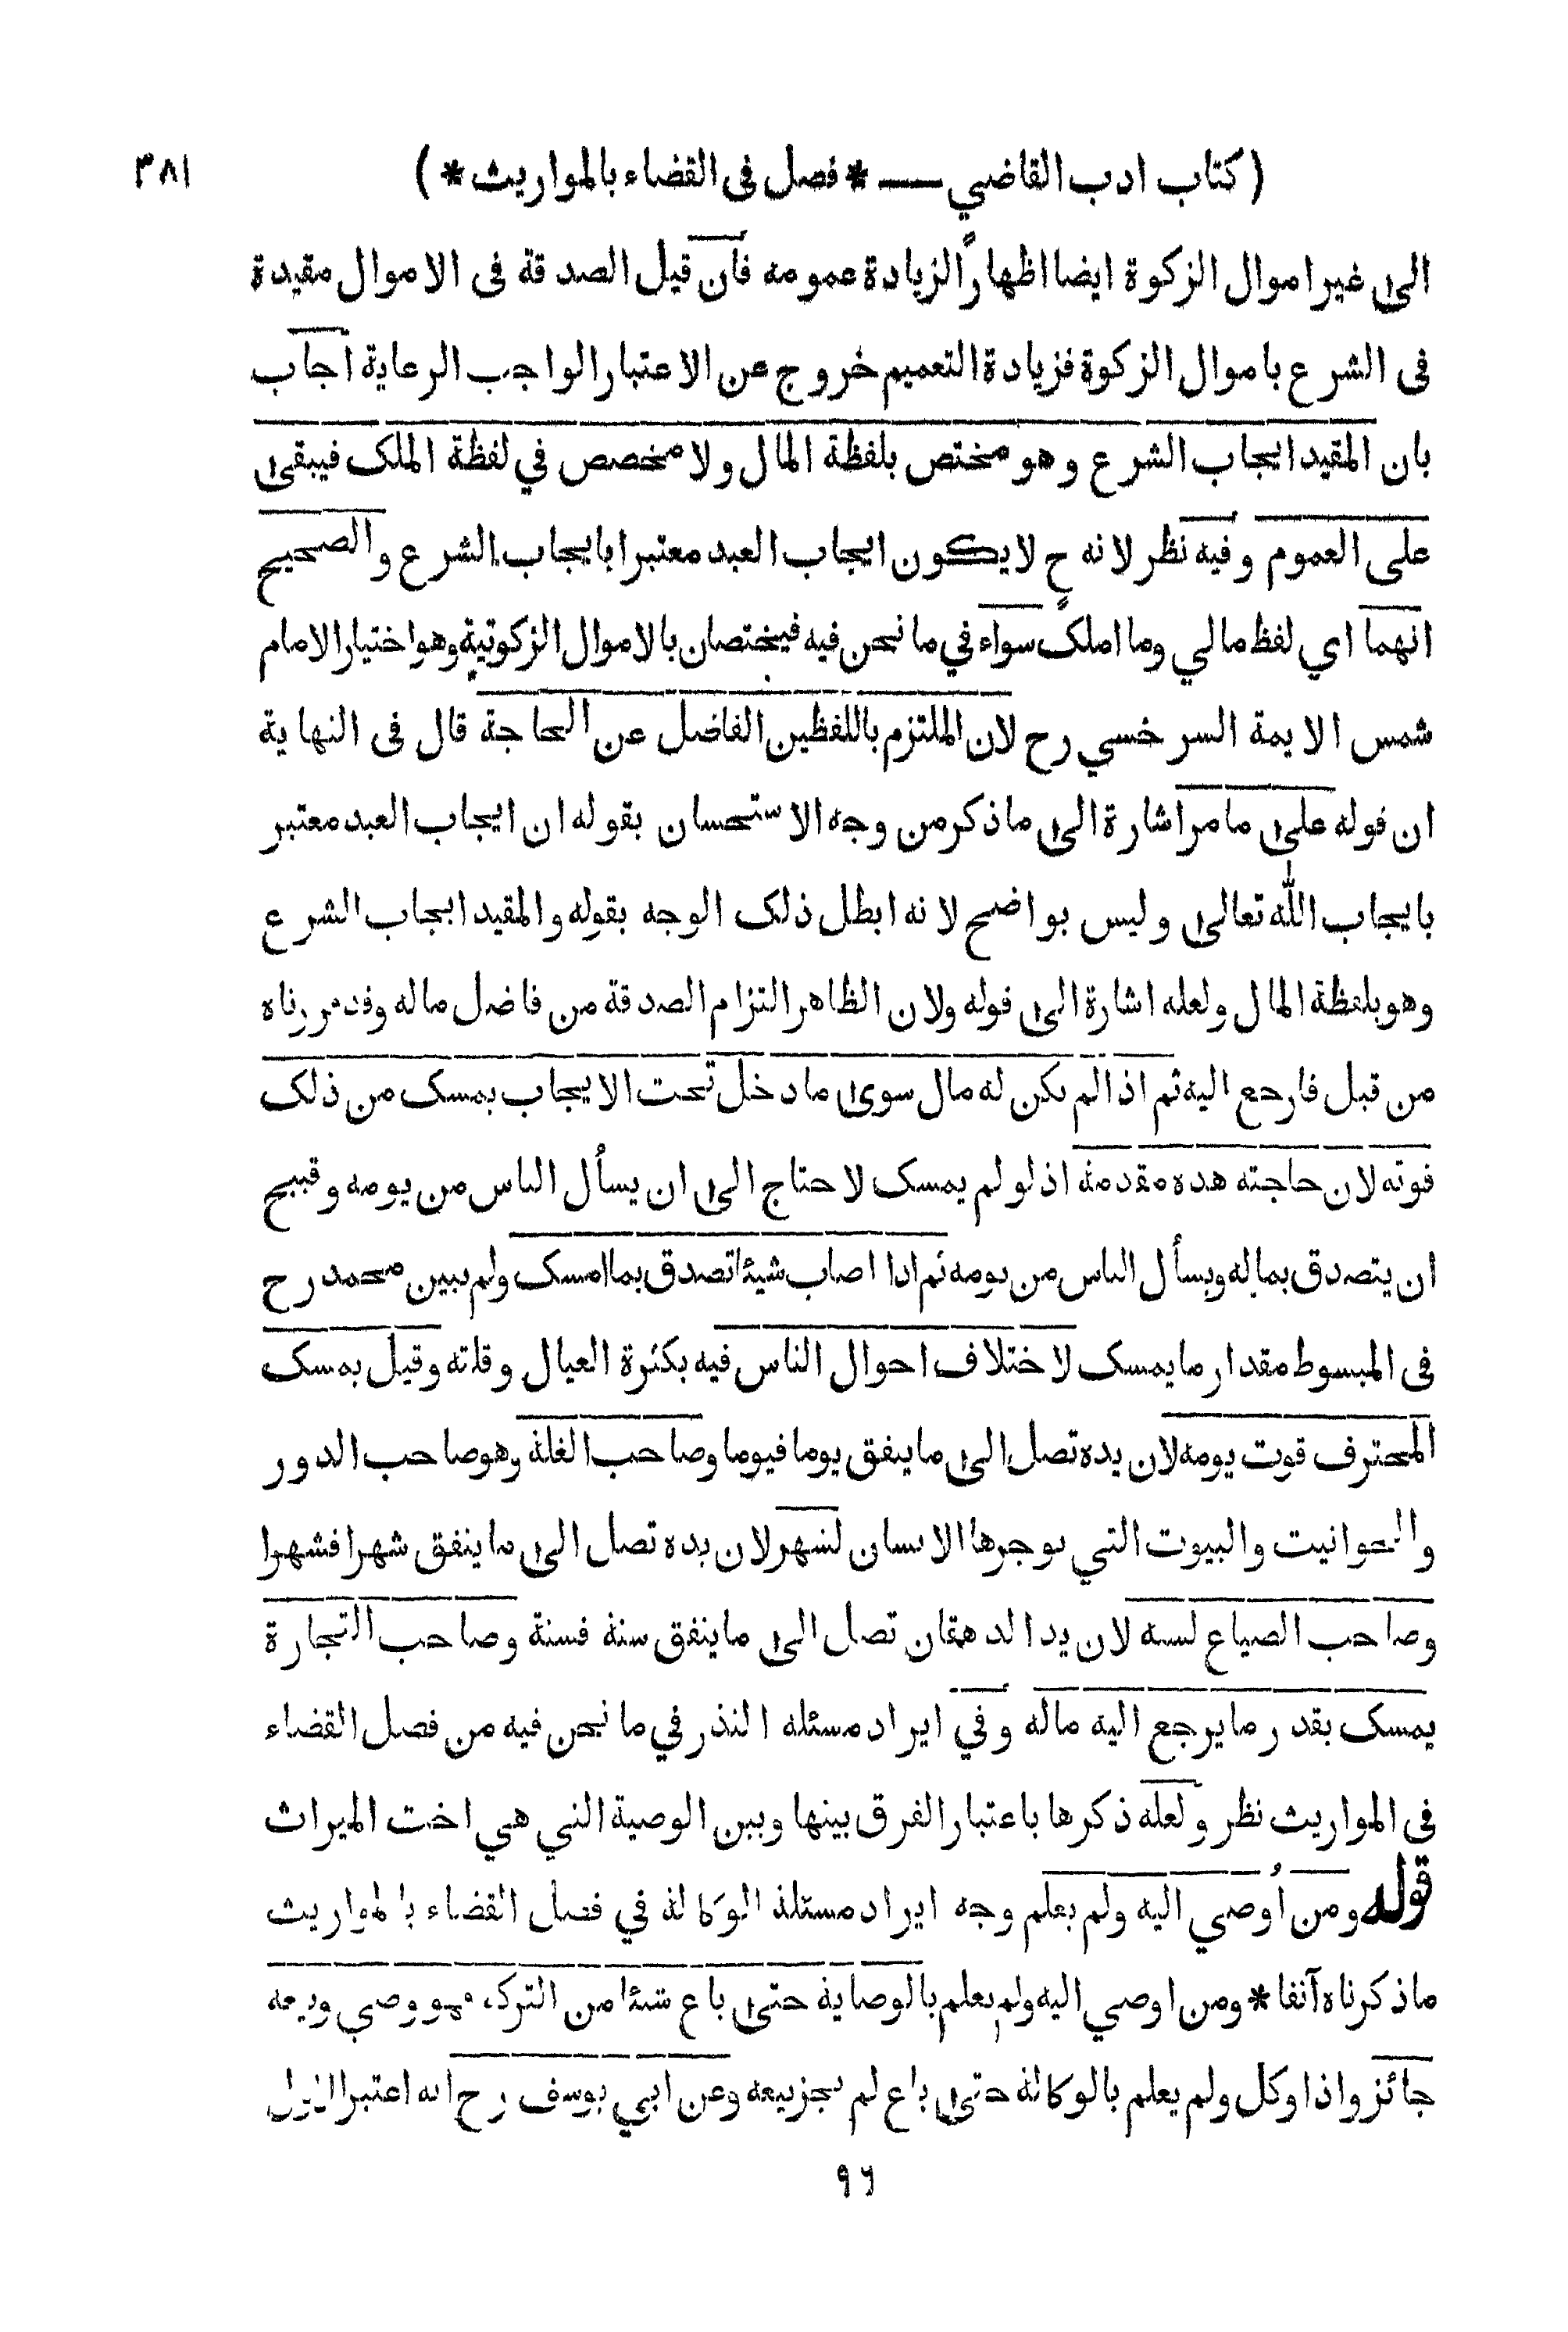 ( كتاب ادب القاضي — * فصل فى القضاء بالمواريث * ) ٣٨١
الى غير اموال الزكوة ايضا اظهاراً لزيادة عمومه فان قيل الصدقة فى الاموال مقيدة
فى الشرع باموال الزكوة فزيادة التعميم خروج عن الاعتبار الواجب الرعاية اجاب
بان المقيد ايجاب الشرع وهو مختص بلفظة المال ولا مخصص في لفظة الملك فيبقى
على العموم وفيه نظر لانه ح لا يكون ايجاب العبد معتبرا بايجاب الشرع والصحيح
انهما اي لفظ مالي وما املك سواء في ما نحن فيه فيختصان بالاموال الزكوتية وهو اختيار الامام
شمس الايمة السرخسي رح لان الملتزم باللفظين الفاضل عن الحاجة قال فى النهاية
ان قوله على ما مر اشارة الى ما ذكر من وجه الاستحسان بقوله ان ايجاب العبد معتبر
بايجاب الله تعالى وليس بواضح لانه ابطل ذلك الوجه بقوله والمقيد ايجاب الشرع
وهو بلفظة المال ولعله اشارة الى قوله ولان الظاهر التزام الصدقة من فاضل ماله وقد مر رناه
من قبل فارجع اليه ثم اذا لم يكن له مال سوى ما دخل تحت الايجاب يمسك من ذلك
قوته لان حاجته هذه مقدمة اذ لو لم يمسك لاحتاج الى ان يسأل الناس من يومه وقبيح
ان يتصدق بماله ويسأل الناس من يومه ثم اذا اصاب شيئا تصدق بما امسك ولم يبين محمد رح
فى المبسوط مقدار ما يمسك لاختلاف احوال الناس فيه بكثرة العيال وقلته وقيل يمسك
المحترف قوت يومه لان يده تصل الى ما ينفق يوما فيوما وصاحب الغلة وهو صاحب الدور
والحوانيت والبيوت التي يوجرها الانسان لشهر لان يده تصل الى ما ينفق شهرا فشهرا
وصاحب الضياع لسنة لان يد الدهقان تصل الى ما ينفق سنة فسنة وصاحب التجارة
يمسك بقدر ما يرجع اليه ماله وفي ايراد مسئلة النذر في ما نحن فيه من فصل القضاء
فى المواريث نظر ولعله ذكرها باعتبار الفرق بينها وبين الوصية التي هي اخت الميراث
قوله ومن اُوصي اليه ولم يعلم وجه ايراد مسئلة الوكالة في فصل القضاء بالمواريث
ما ذكرناه آنفا * ومن اوصي اليه ولم يعلم بالوصاية حتى باع شيئا من التركة فهو وصي وبيعه
جائز واذا وكل ولم يعلم بالوكالة حتى باع لم يجز بيعه وعن ابي يوسف رح انه اعتبر
٩٦